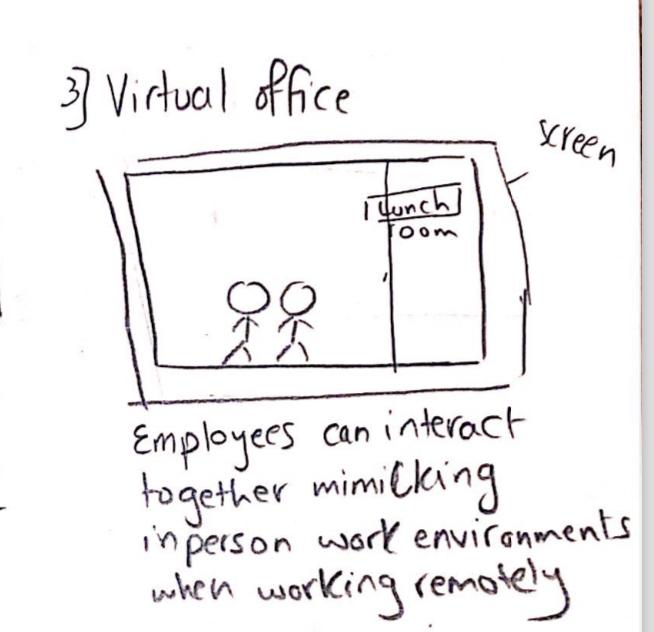 3] Virtual office
screen
Lunch
room
Employees can interact
together mimicking
inperson work environments
when working remotely